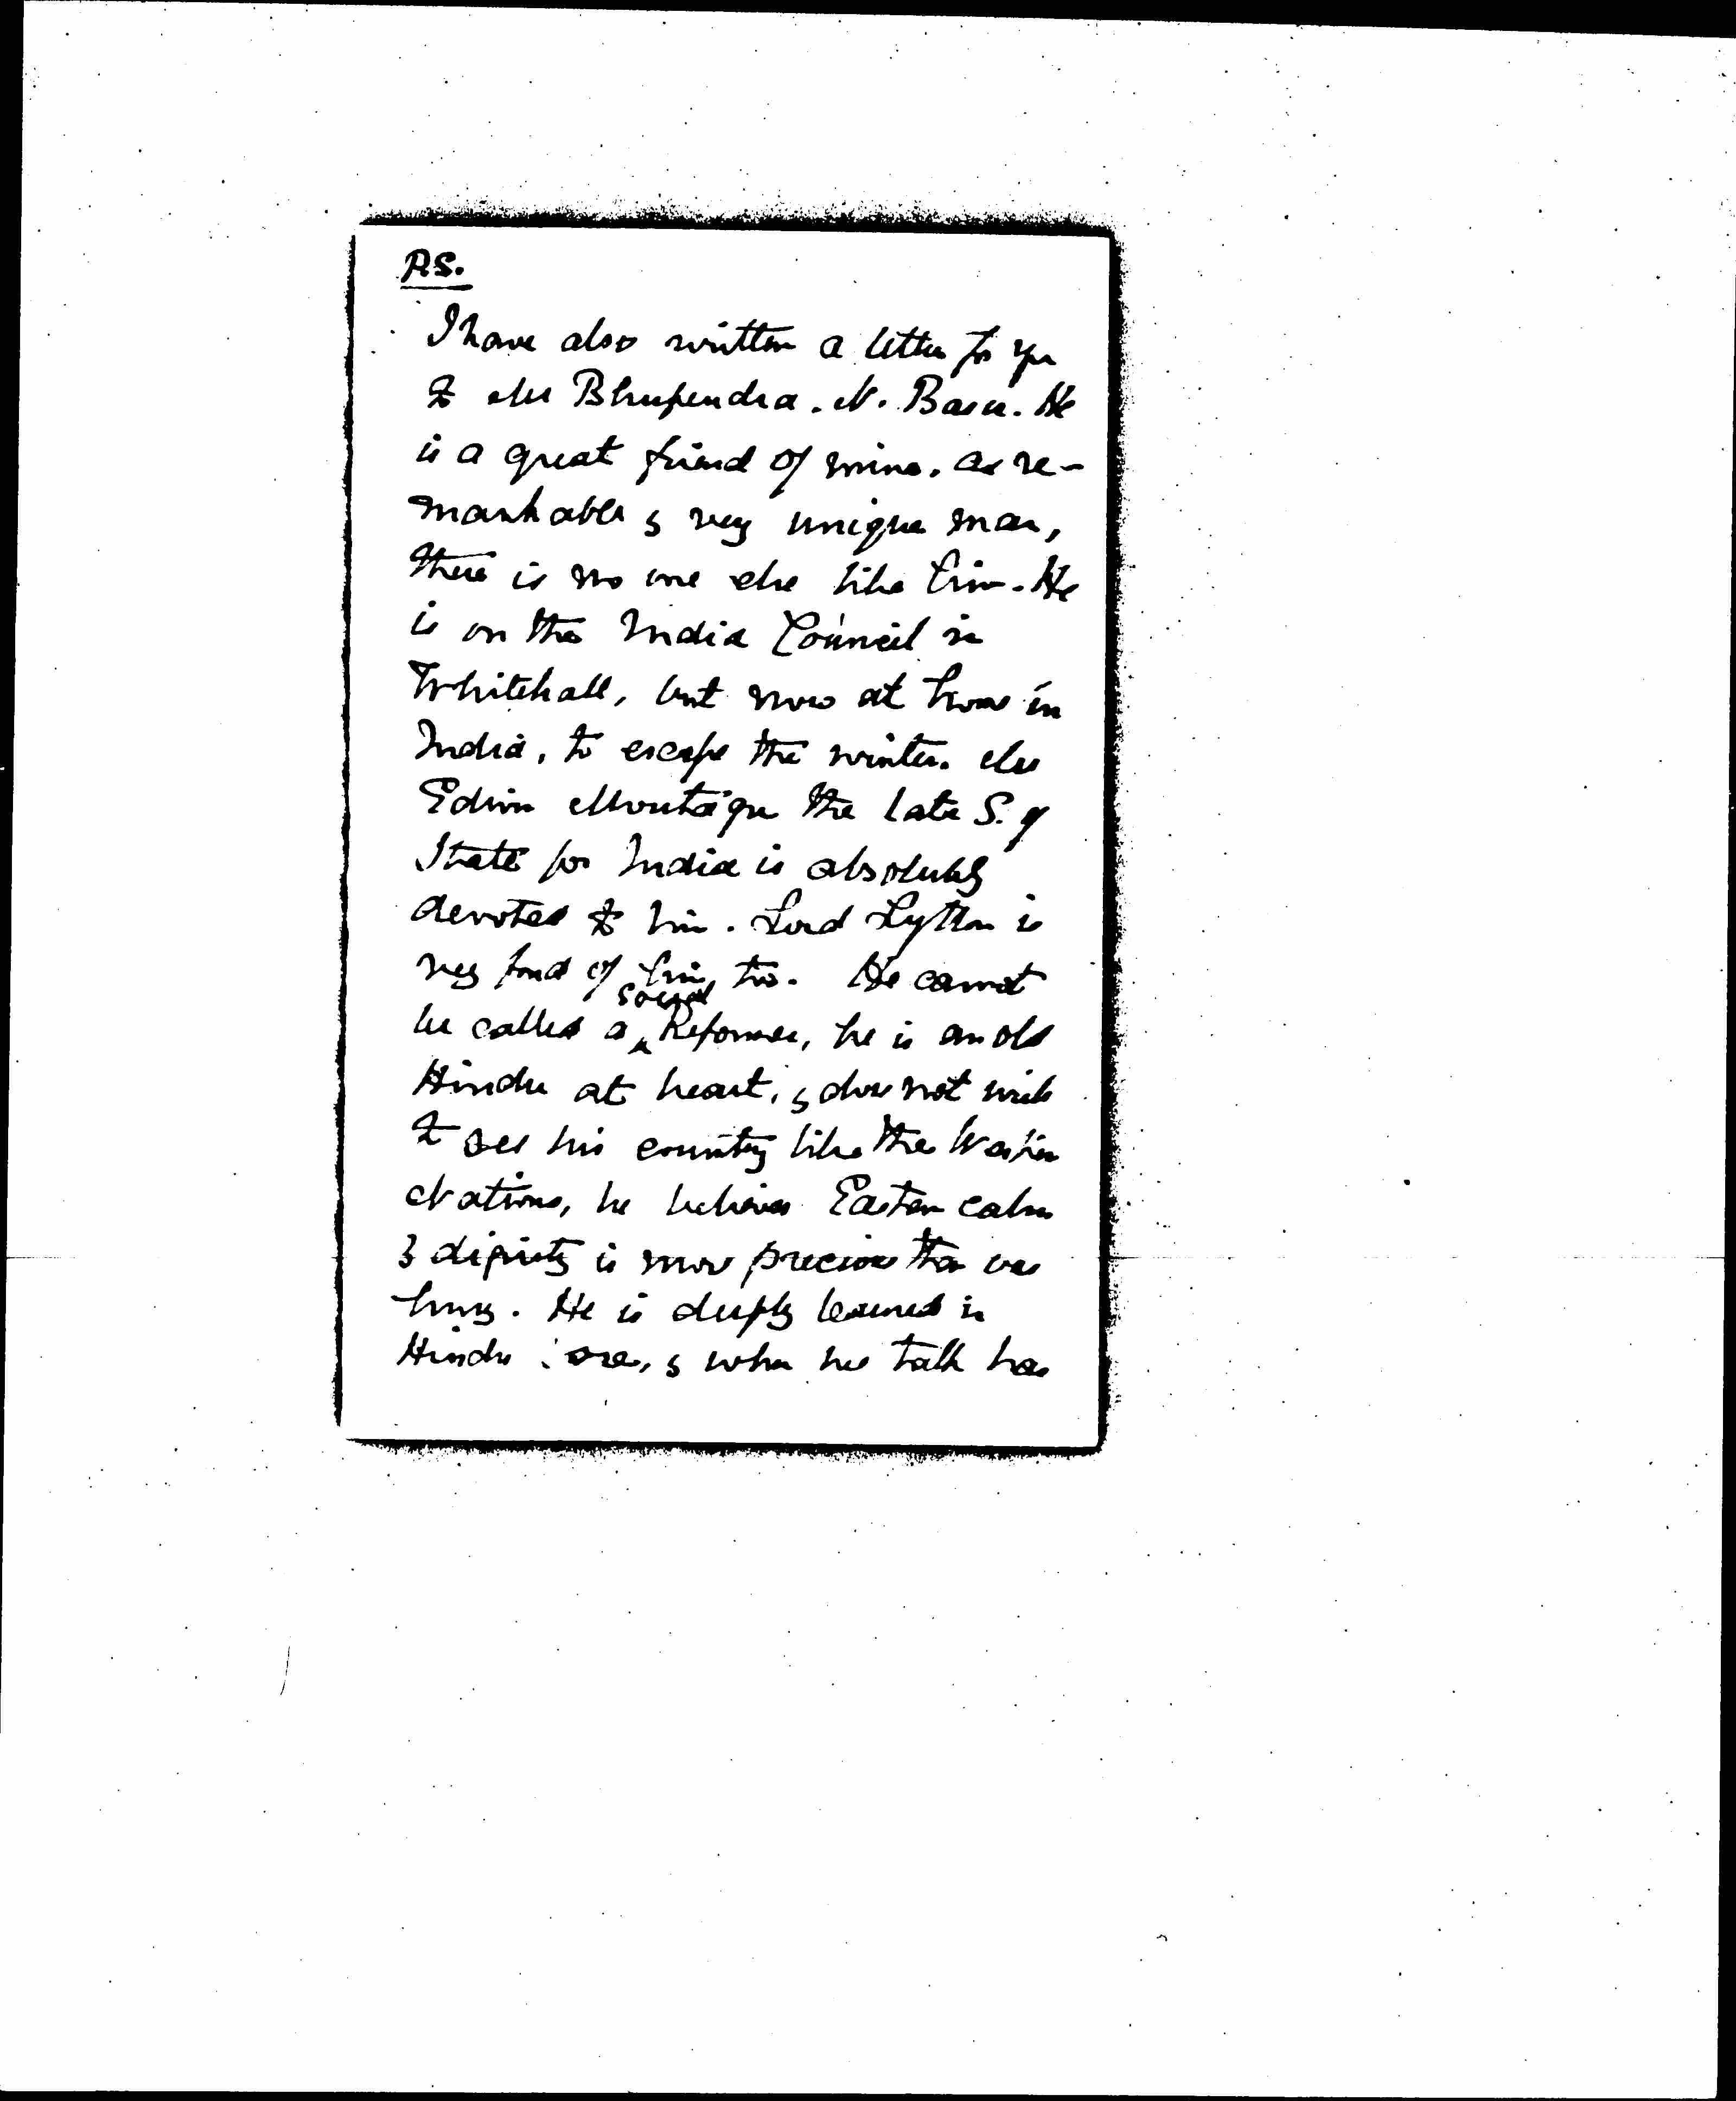 P.S.
I have also written a letter for you
to Mr Bhupendra. N. Basu. He
is a great friend of mine. a re-
markable & very unique man,
there is no one else like him. He
is on the India Council in
Whitehall, but now at home in
India, to escape the winter. Mr
Edwin Montagu the late S. of
State for India is absolutely
devoted to him. Lord Lytton is
very fond of him too. He cannot
be called a social Reformer, he is an old
Hindu at heart, & does not wish
to see his country like the Western
Nations, he believes Eastern calm
& dignity is more precious than our
hurry. He is deeply learned in
Hindu lore, & when he talk has